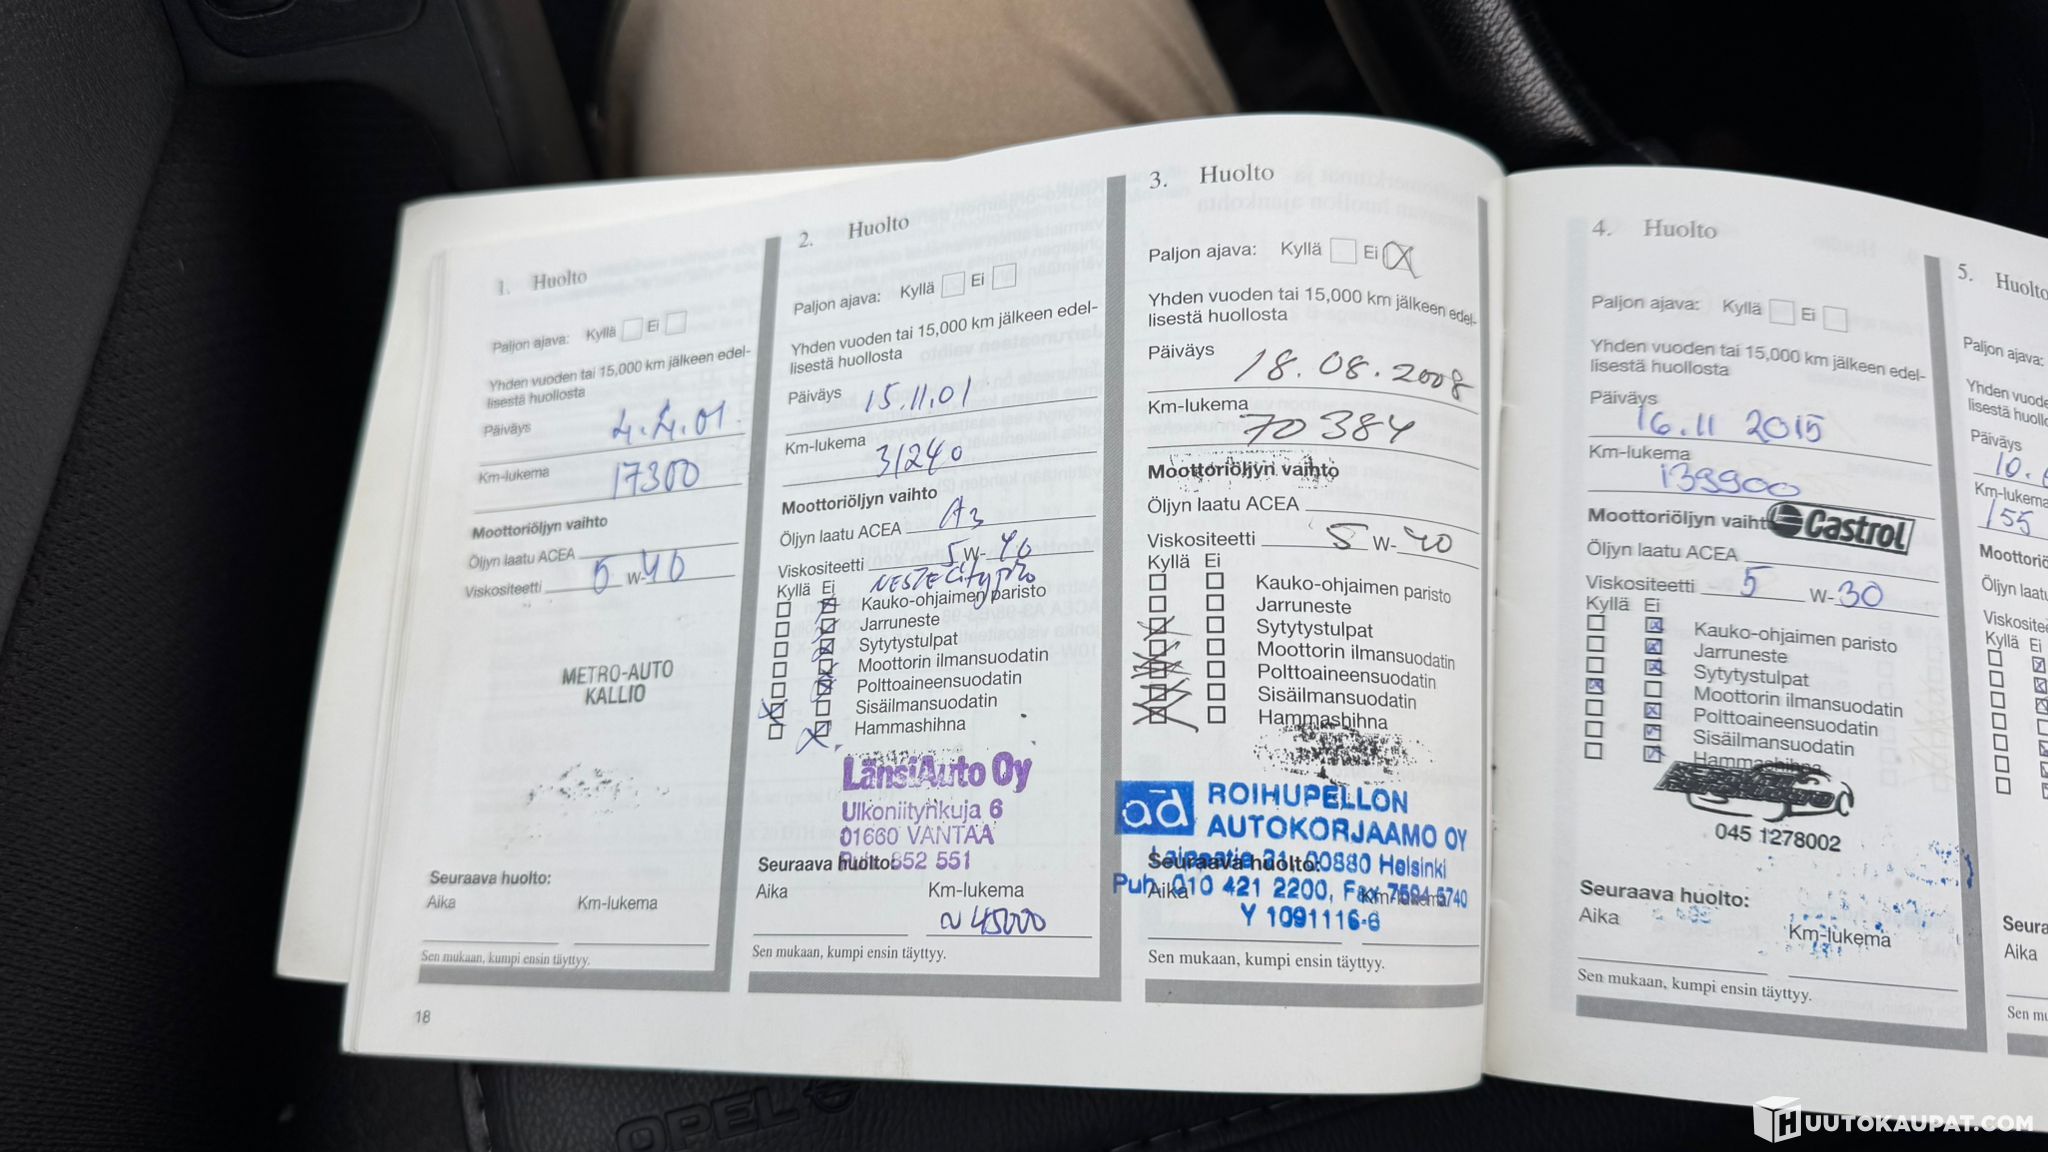 1. Huolto
Paljon ajava: Kyllä Ei
Yhden vuoden tai 15,000 km jälkeen edel-
lisestä huollosta
Päiväys 4.4.01.
Km-lukema 17300
Moottoriöljyn vaihto
Öljyn laatu ACEA
Viskositeetti 5 W- 40
METRO-AUTO
KALLIO
Seuraava huolto:
Aika Km-lukema
Sen mukaan, kumpi ensin täyttyy.
18
2. Huolto
Paljon ajava: Kyllä Ei
Yhden vuoden tai 15,000 km jälkeen edel-
lisestä huollosta
Päiväys 15.11.01
Km-lukema 31240
Moottoriöljyn vaihto
Öljyn laatu ACEA A3
Viskositeetti 5 W- 40
NESTE Citypro
Kyllä Ei
Kauko-ohjaimen paristo
Jarruneste
Sytytystulpat
Moottorin ilmansuodatin
Polttoaineensuodatin
Sisäilmansuodatin
Hammashihna
LänsiAuto Oy
Ulkoniityhkuja 6
01660 VANTAA
852 551
Seuraava huolto:
Aika Km-lukema
~ 45000
Sen mukaan, kumpi ensin täyttyy.
3. Huolto
Paljon ajava: Kyllä Ei X
Yhden vuoden tai 15,000 km jälkeen edel-
lisestä huollosta
Päiväys 18.08.2008
Km-lukema 70 384
Moottoriöljyn vaihto
Öljyn laatu ACEA
Viskositeetti 5 W- 40
Kyllä Ei
Kauko-ohjaimen paristo
Jarruneste
Sytytystulpat
Moottorin ilmansuodatin
Polttoaineensuodatin
Sisäilmansuodatin
Hammashihna
ad ROIHUPELLON
AUTOKORJAAMO OY
00880 Helsinki
Seuraava huolto:
Puh. 010 421 2200, Fax 7594 5740
Aika Km-lukema
Y 1091116-6
Sen mukaan, kumpi ensin täyttyy.
4. Huolto
Paljon ajava: Kyllä Ei
Yhden vuoden tai 15,000 km jälkeen edel-
lisestä huollosta
Päiväys
16.11 2015
Km-lukema
139900
Moottoriöljyn vaihto Castrol
Öljyn laatu ACEA
Viskositeetti 5 W- 30
Kyllä Ei
Kauko-ohjaimen paristo
Jarruneste
Sytytystulpat
Moottorin ilmansuodatin
Polttoaineensuodatin
Sisäilmansuodatin
Hammashihna
045 1278002
Seuraava huolto:
Aika Km-lukema
Sen mukaan, kumpi ensin täyttyy.
5. Huolto
Paljon ajava:
Yhden vuode
lisestä huollo
Päiväys
10.
Km-lukema
155
Moottoriö
Öljyn laatu
Viskositee
Kyllä Ei
Seura
Aika
Sen mu
OPEL
HUUTOKAUPAT.COM